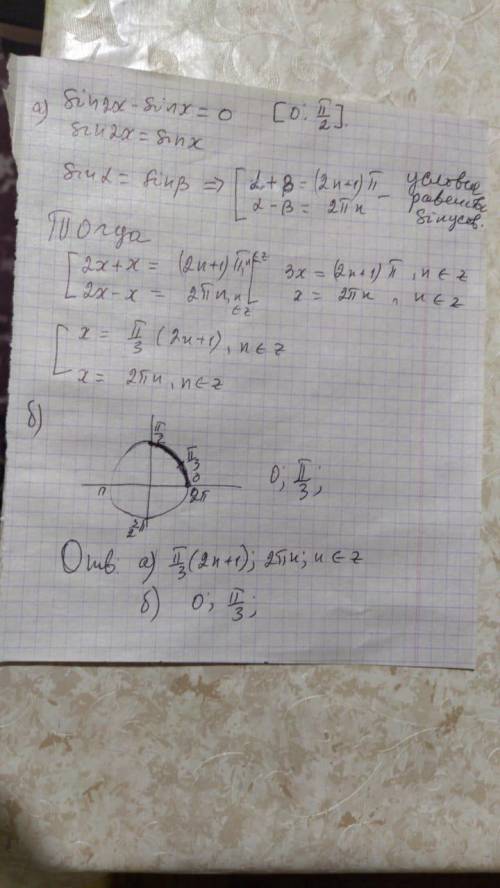 а) sin2x - sinx = 0 [0; π/2].
sin2x = sinx
sinα = sinβ => [ α + β = (2n+1)π - условие
α - β = 2πn равенства
sinусов.
Тогда
[ 2x + x = (2n+1)π, n∈z [ 3x = (2n+1)π, n∈z
2x - x = 2πn, n∈z x = 2πn, n∈z
[ x = π/3 (2n+1), n∈z
x = 2πn, n∈z
б)
π/2
π/3
0
π 2π 0; π/3;
3/2π
Отв. а) π/3 (2n+1); 2πn; n∈z
б) 0; π/3;